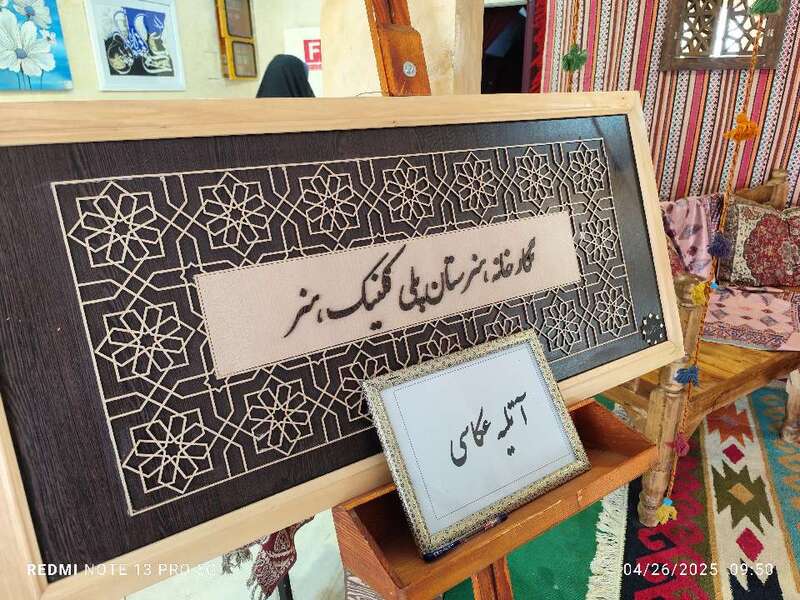 نگارخانه هنرستان پلی کلینیک هنر
آتلیه عکاسی
F
REDMI NOTE 13 PRO 5G
04/26/2025 09:50